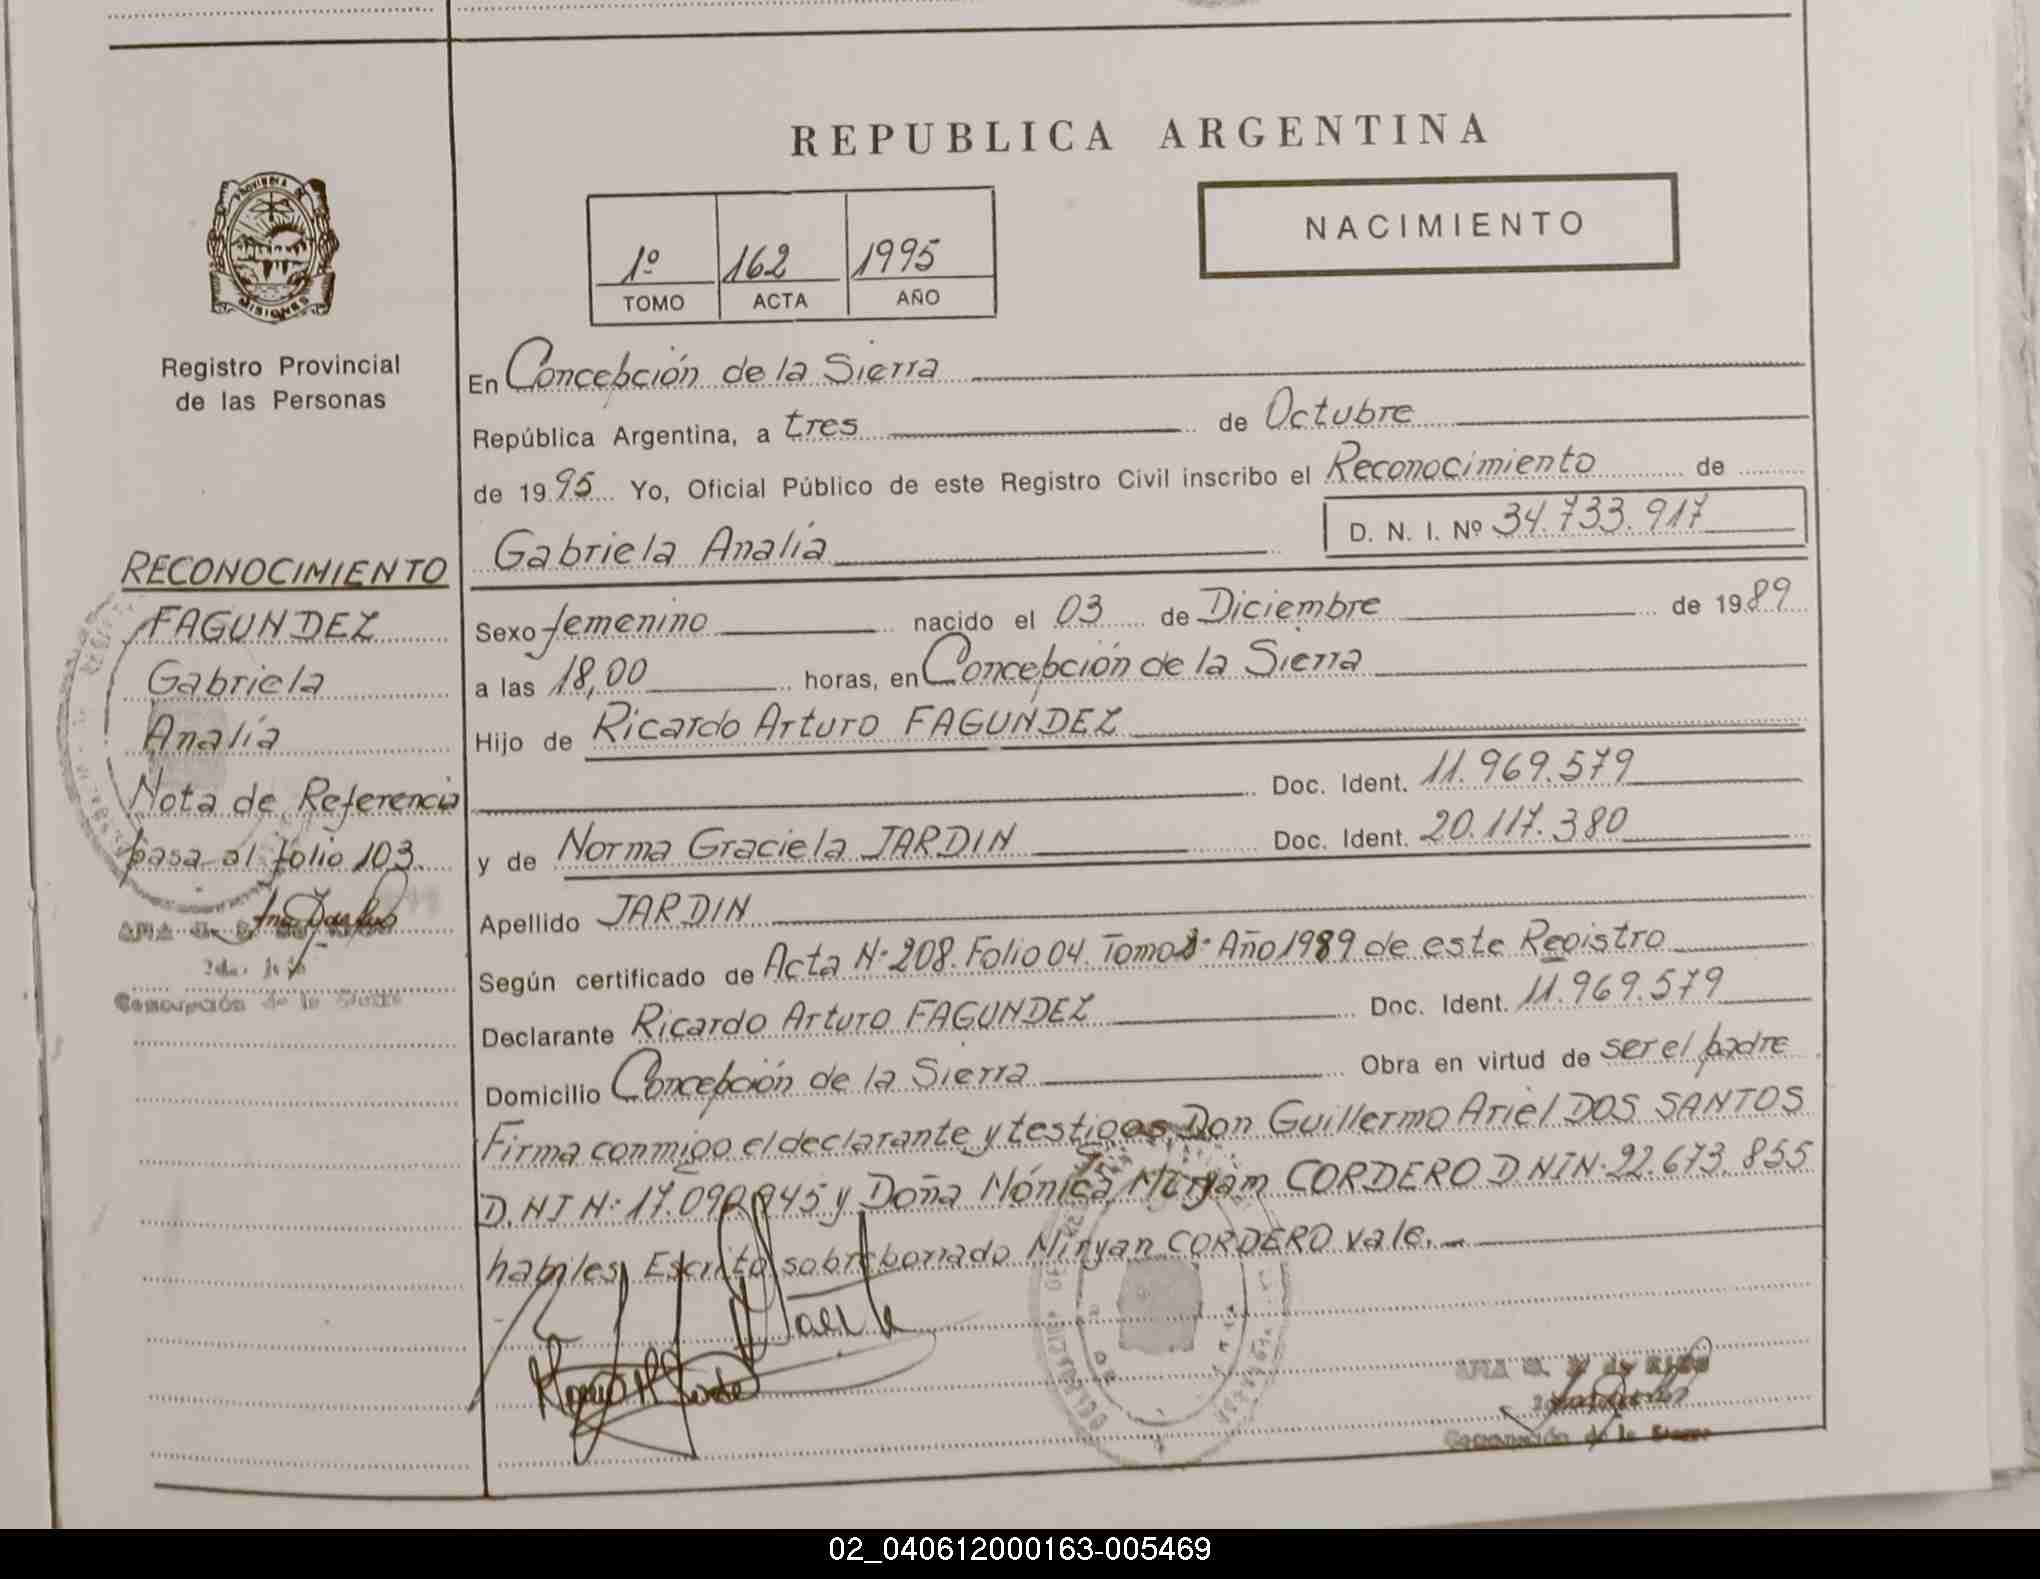 REPUBLICA ARGENTINA
PROVINCIA DE MISIONES
Registro Provincial
de las Personas
1º 162 1995
TOMO ACTA AÑO
NACIMIENTO
En Concepción de la Sierra
República Argentina, a tres de Octubre
de 1995 Yo, Oficial Público de este Registro Civil inscribo el Reconocimiento de
Gabriela Analía D. N. I. Nº 34.733.917
Sexo femenino nacido el 03 de Diciembre de 1989
a las 18,00 horas, en Concepción de la Sierra
Hijo de Ricardo Arturo FAGUNDEZ
Doc. Ident. 11.969.579
y de Norma Graciela JARDIN Doc. Ident. 20.117.380
Apellido JARDIN
Según certificado de Acta N· 208. Folio 04. Tomo 1· Año 1989 de este Registro
Declarante Ricardo Arturo FAGUNDEZ Doc. Ident. 11.969.579
Domicilio Concepción de la Sierra Obra en virtud de ser el padre
Firma conmigo el declarante y testigos, Don Guillermo Ariel DOS SANTOS
D.NI N: y Doña Mónica Miryam CORDERO DNIN· 22.673.855
habiles, Escrito sobreborrado Miryan CORDERO vale.
RECONOCIMIENTO
FAGUNDEZ
Gabriela
Analía
Nota de Referencia
pasa al folio 103.
Concepción de la Sierra
Concepción de la Sierra
02_040612000163-005469